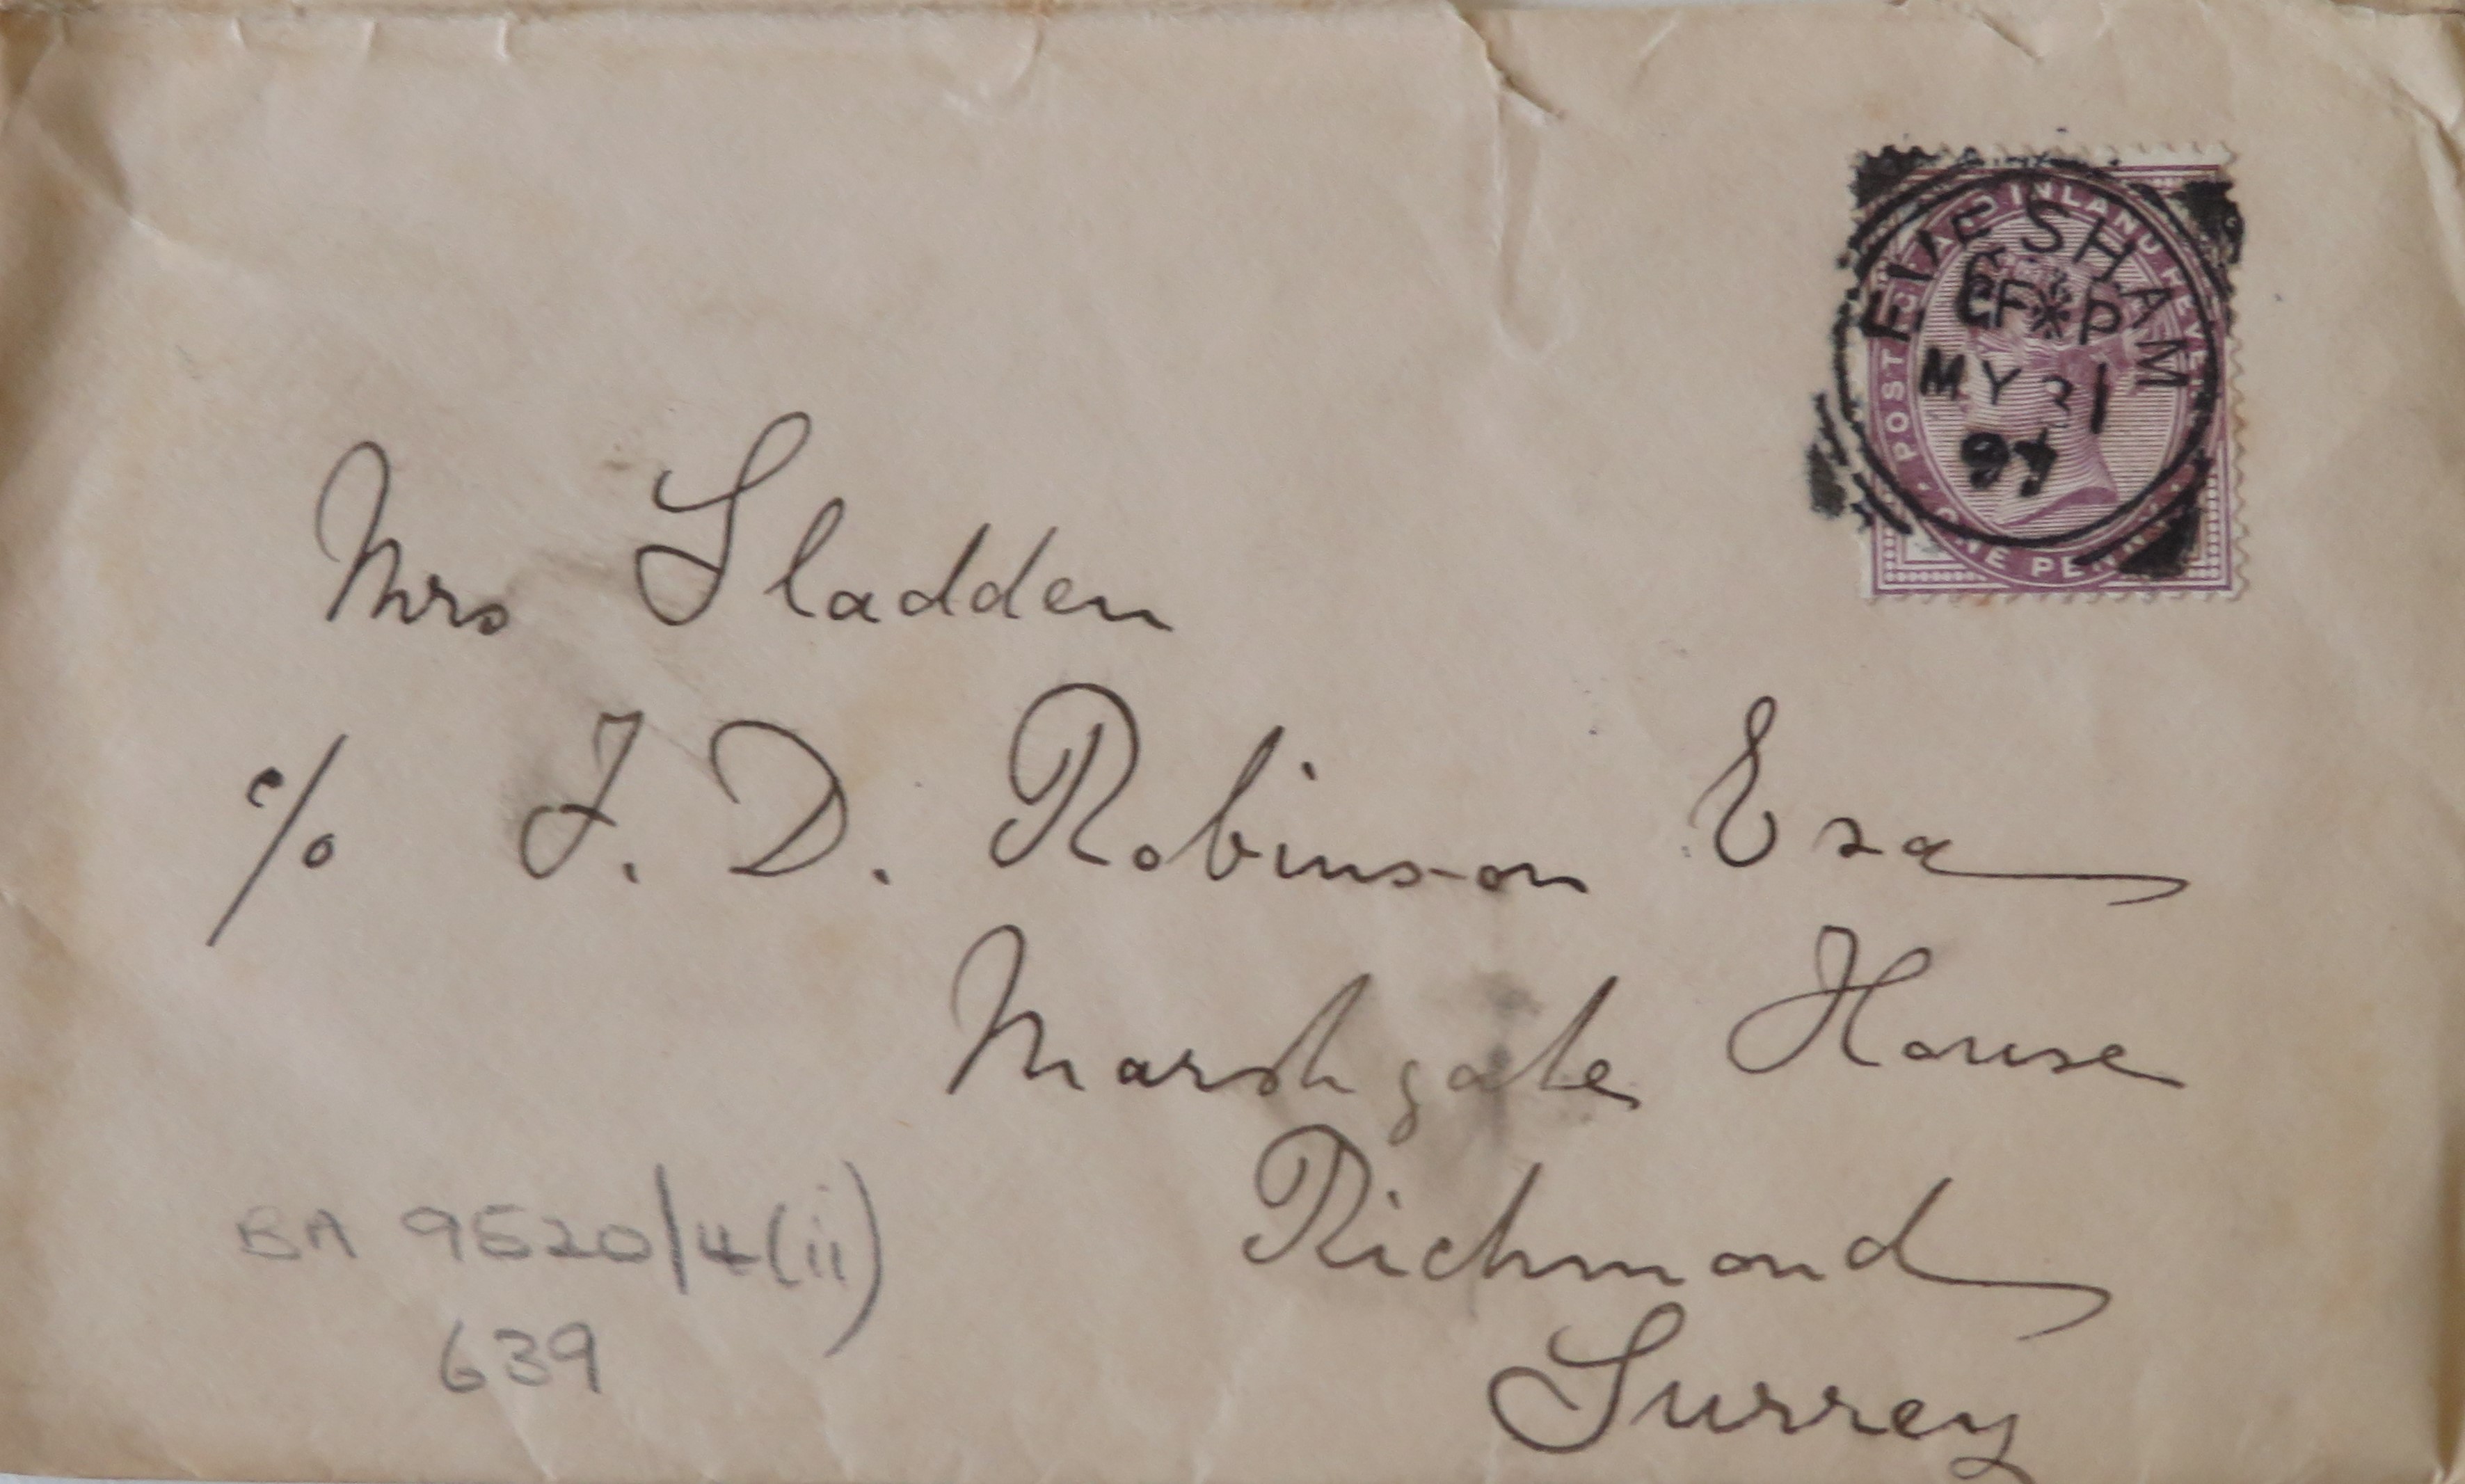 POSTAGE AND INLAND REVENUE
ONE PENNY
EVESHAM
MY 31
97
Mrs Sladden
c/o J. D. Robinson Esq
Marshgate House
Richmond
Surrey
BA 9520/4(ii)
639